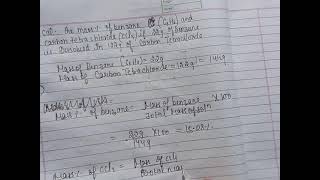 Cal. the mass % of benzene (C6H6) and
carbon tetrachloride (CCl4) if 22g of benzene
is dissolved in 122g of Carbon tetrachloride
Mass of Benzene (C6H6) = 22g
Mass of Carbon Tetrachloride = 122g = 144g
Mass % of benzene = Mass of benzene × 100
Total Mass of soln
= 22g × 100 = 15.28%
144g
Mass % of CCl4 = Mass of CCl4
Total mass